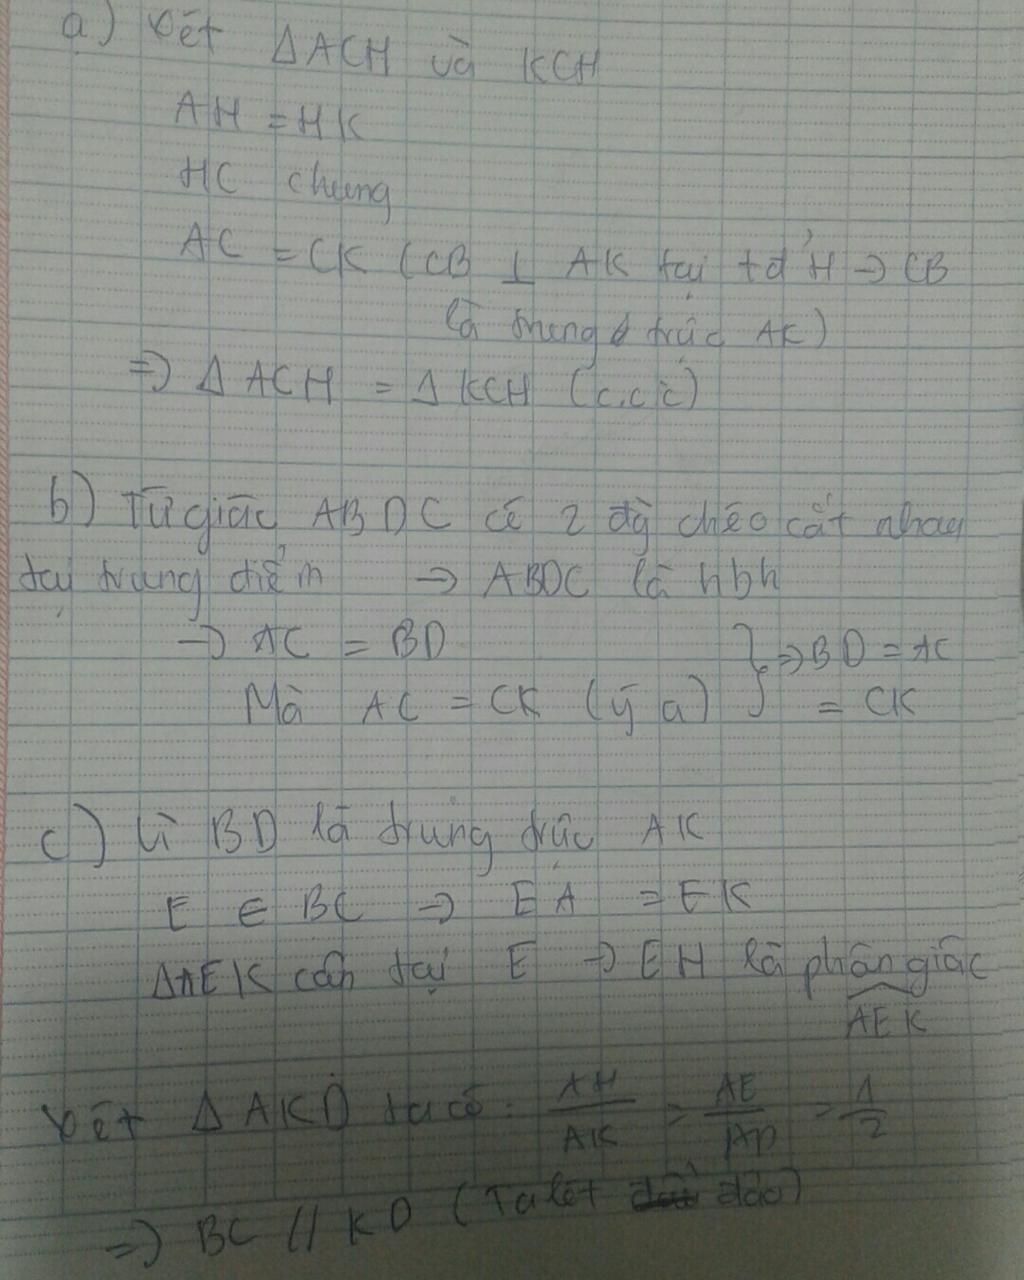 a) Xét ΔACH và KCH
AH = HK
HC chung
AC = CK (CB ⊥ AK tại tđ H → CB
là trung trực AK)
=> Δ ACH = Δ KCH (c.c.c)
b) Tứ giác ABDC có 2 đg chéo cắt nhau
tại trung điểm → ABDC là hbh
→ AC = BD } => BD = AC
Mà AC = CK (ý a) } = CK
c) Vì BD là trung trực AK
E ∈ BC → EA = EK
ΔAEK cân tại E → EH là phân giác
\widehat{AEK}
Xét Δ AKD ta có: AH/AK = AE/AD = 1/2
=> BC // KD (Talet đảo)